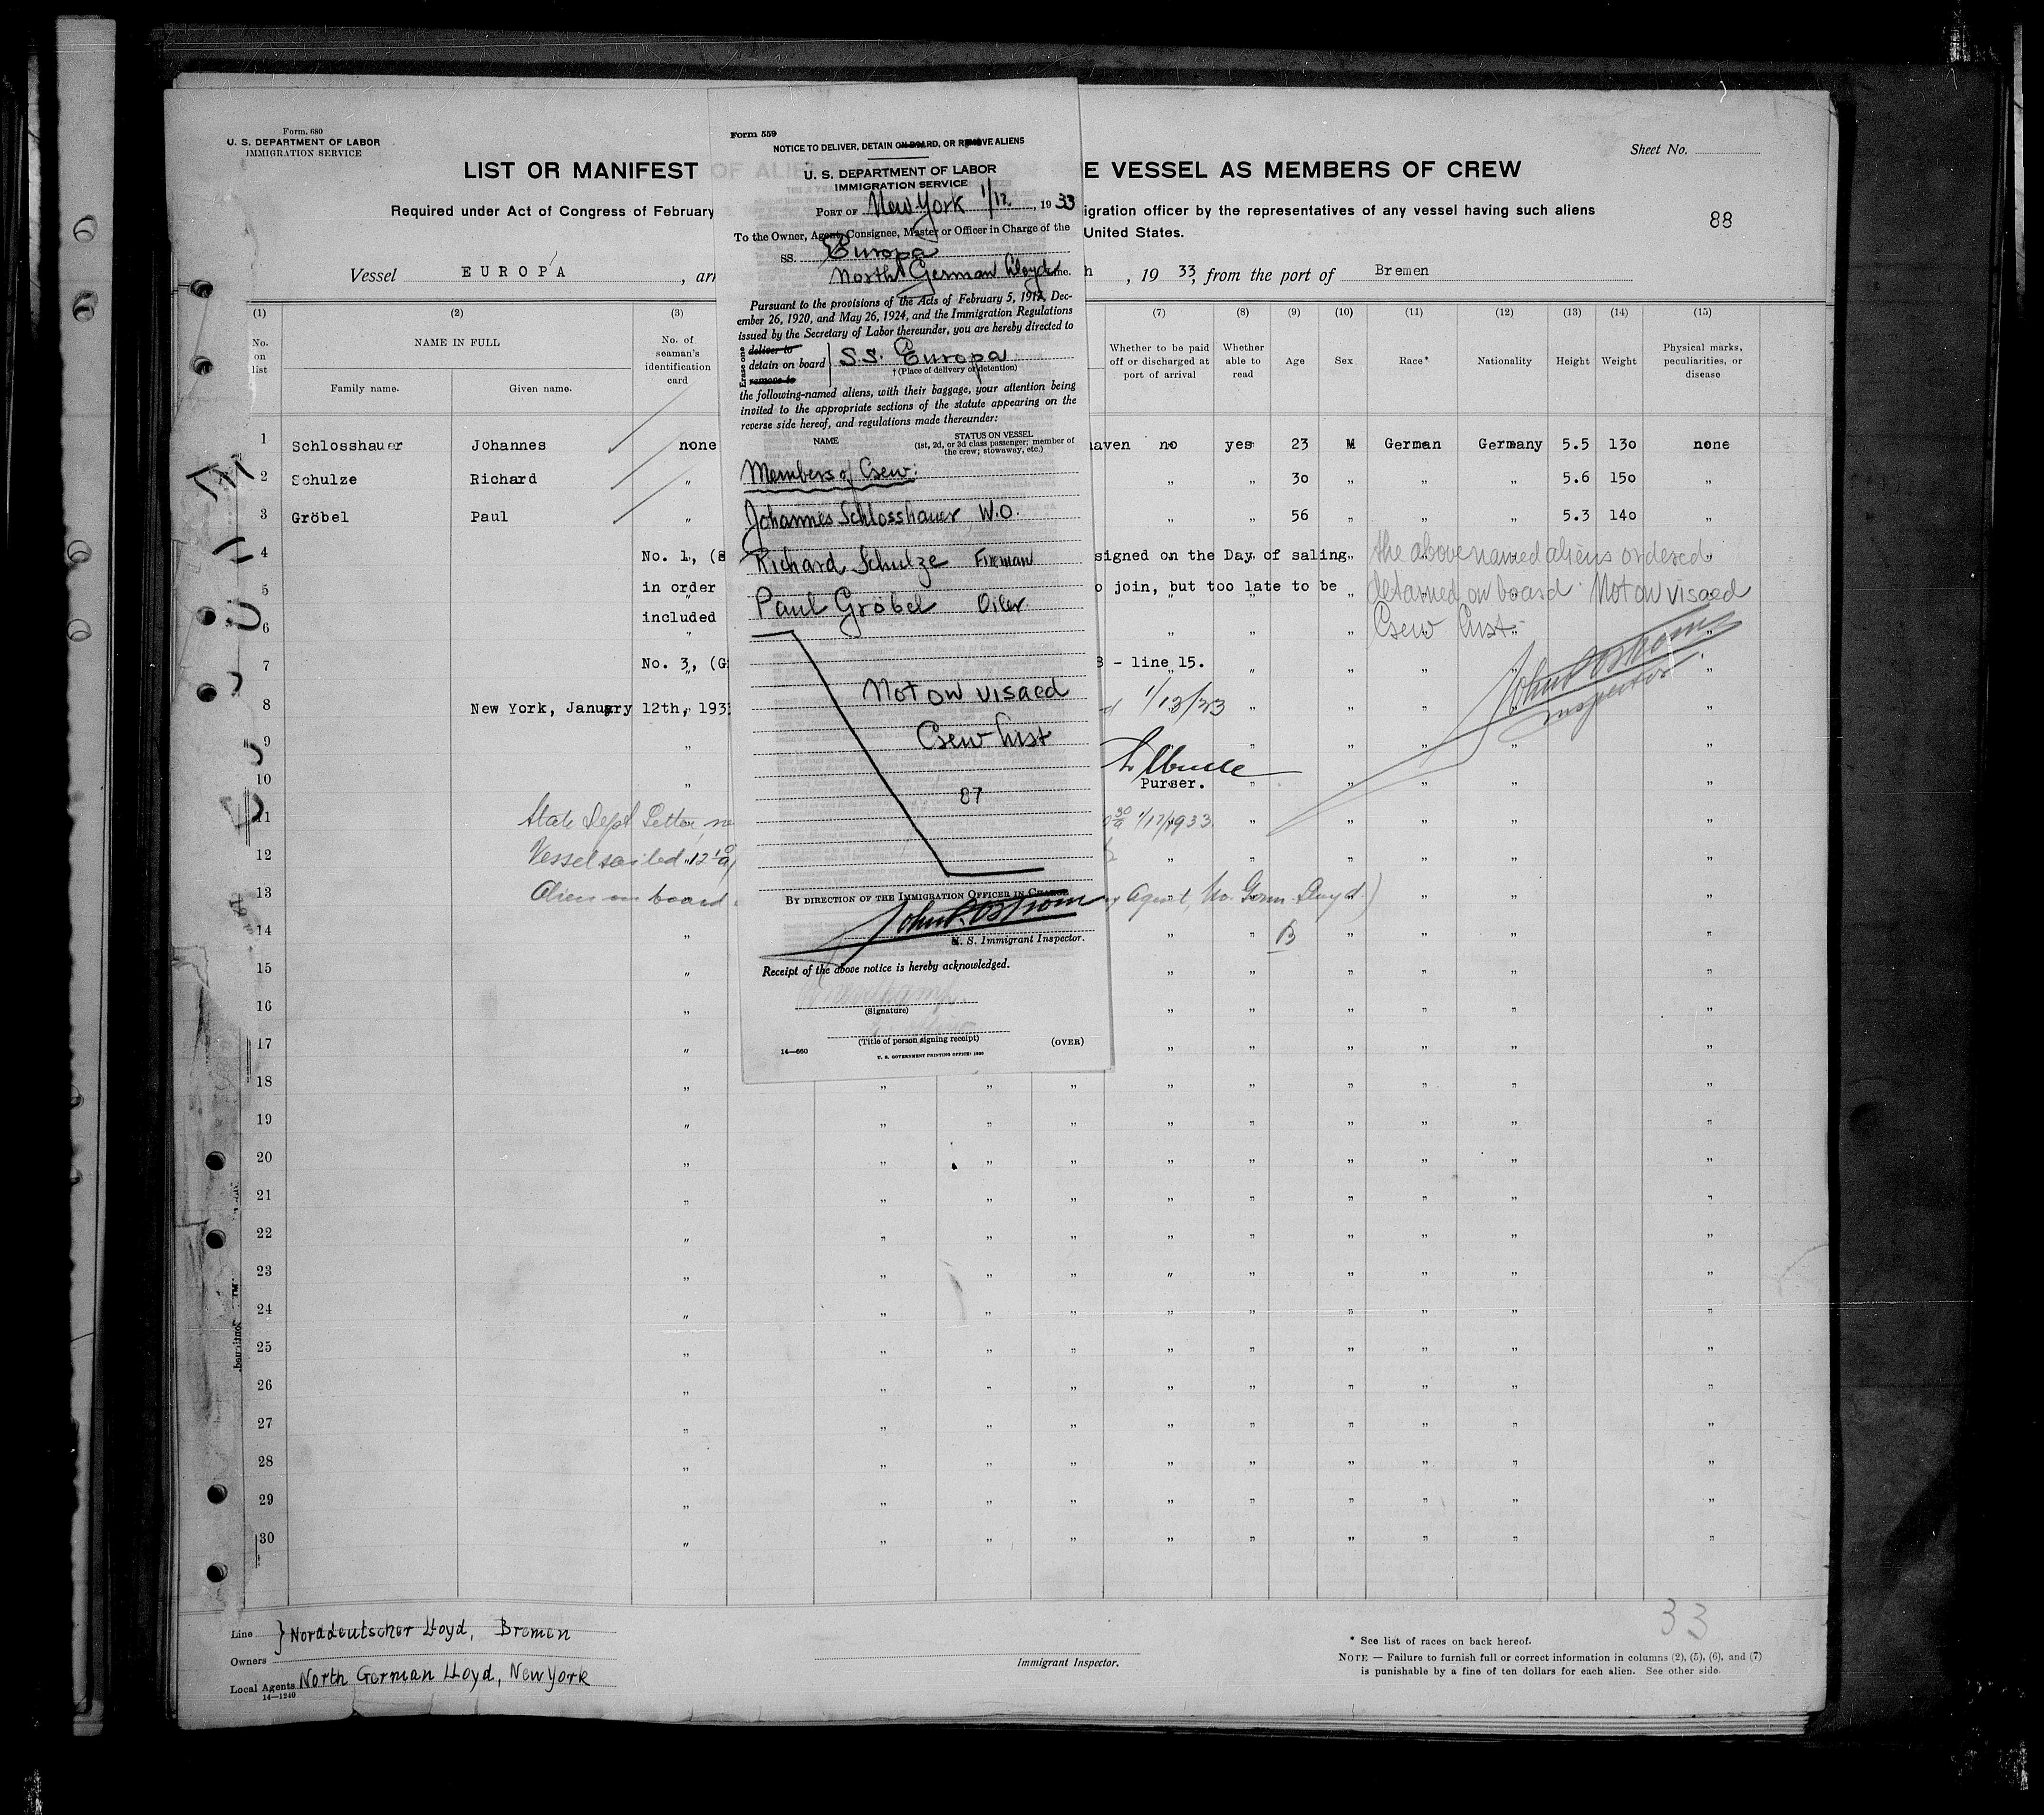 Form 680
U. S. DEPARTMENT OF LABOR
IMMIGRATION SERVICE
Sheet No.
LIST OR MANIFEST OF ALIE E VESSEL AS MEMBERS OF CREW
Required under Act of Congress of February igration officer by the representatives of any vessel having such aliens
United States.
88
Vessel EUROPA, arr h, 19 33, from the port of Bremen
(1) (2) (3) (7) (8) (9) (10) (11) (12) (13) (14) (15)
No. on list
NAME IN FULL
Family name. Given name.
No. of seaman's identification card
Whether to be paid off or discharged at port of arrival
Whether able to read
Age
Sex
Race*
Nationality
Height
Weight
Physical marks, peculiarities, or disease
1 Schlosshauer Johannes none haven no yes 23 M German Germany 5.5 130 none
2 Schulze Richard " " " 30 " " " 5.6 150 "
3 Gröbel Paul " " " 56 " " " 5.3 140 "
4 No. 1, (s signed on the Day of saling the above named aliens ordered
5 in order o join, but too late to be detained on board Not on visaed
6 included Crew List
7 No. 3, (G 3 - line 15.
John P. Ostrom
Inspector
8 New York, January 12th, 193 1/12/33
9
10 Purser.
11 State Dept Letter, 1/12/1933
12 Vessel sailed 12
13 Alien on board Agent, No. Germ. Lloyd.)
14 B
15
16
17
18
19
20
21
22
23
24
25
26
27
28
29
30
Form 559
NOTICE TO DELIVER, DETAIN ON BOARD, OR REMOVE ALIENS
U. S. DEPARTMENT OF LABOR
IMMIGRATION SERVICE
PORT OF New York 1/12, 1933
To the Owner, Agent, Consignee, Master or Officer in Charge of the
SS. Europa
North German Lloyd Inc.
Pursuant to the provisions of the Acts of February 5, 1917, Dec-
ember 26, 1920, and May 26, 1924, and the Immigration Regulations
issued by the Secretary of Labor thereunder, you are hereby directed to
Erase one
deliver to
detain on board } S.S. Europa
remove to
† (Place of delivery or detention)
the following-named aliens, with their baggage, your attention being
invited to the appropriate sections of the statute appearing on the
reverse side hereof, and regulations made thereunder:
NAME
STATUS ON VESSEL
(1st, 2d, or 3d class passenger; member of
the crew; stowaway, etc.)
Members of Crew:
Johannes Schlosshauer W.O.
Richard Schulze Fireman
Paul Gröbel Oiler.
Not on visaed
Crew List
87
BY DIRECTION OF THE IMMIGRATION OFFICER IN CHARGE
John P. Ostrom
U. S. Immigrant Inspector.
Receipt of the above notice is hereby acknowledged.
(Signature)
(Title of person signing receipt)
14—660
U. S. GOVERNMENT PRINTING OFFICE: 1930
(OVER)
33
Line } Norddeutscher Lloyd, Bremen
Owners
Local Agents North German Lloyd, New York
14—1240
Immigrant Inspector.
* See list of races on back hereof.
NOTE — Failure to furnish full or correct information in columns (2), (5), (6), and (7)
is punishable by a fine of ten dollars for each alien. See other side.